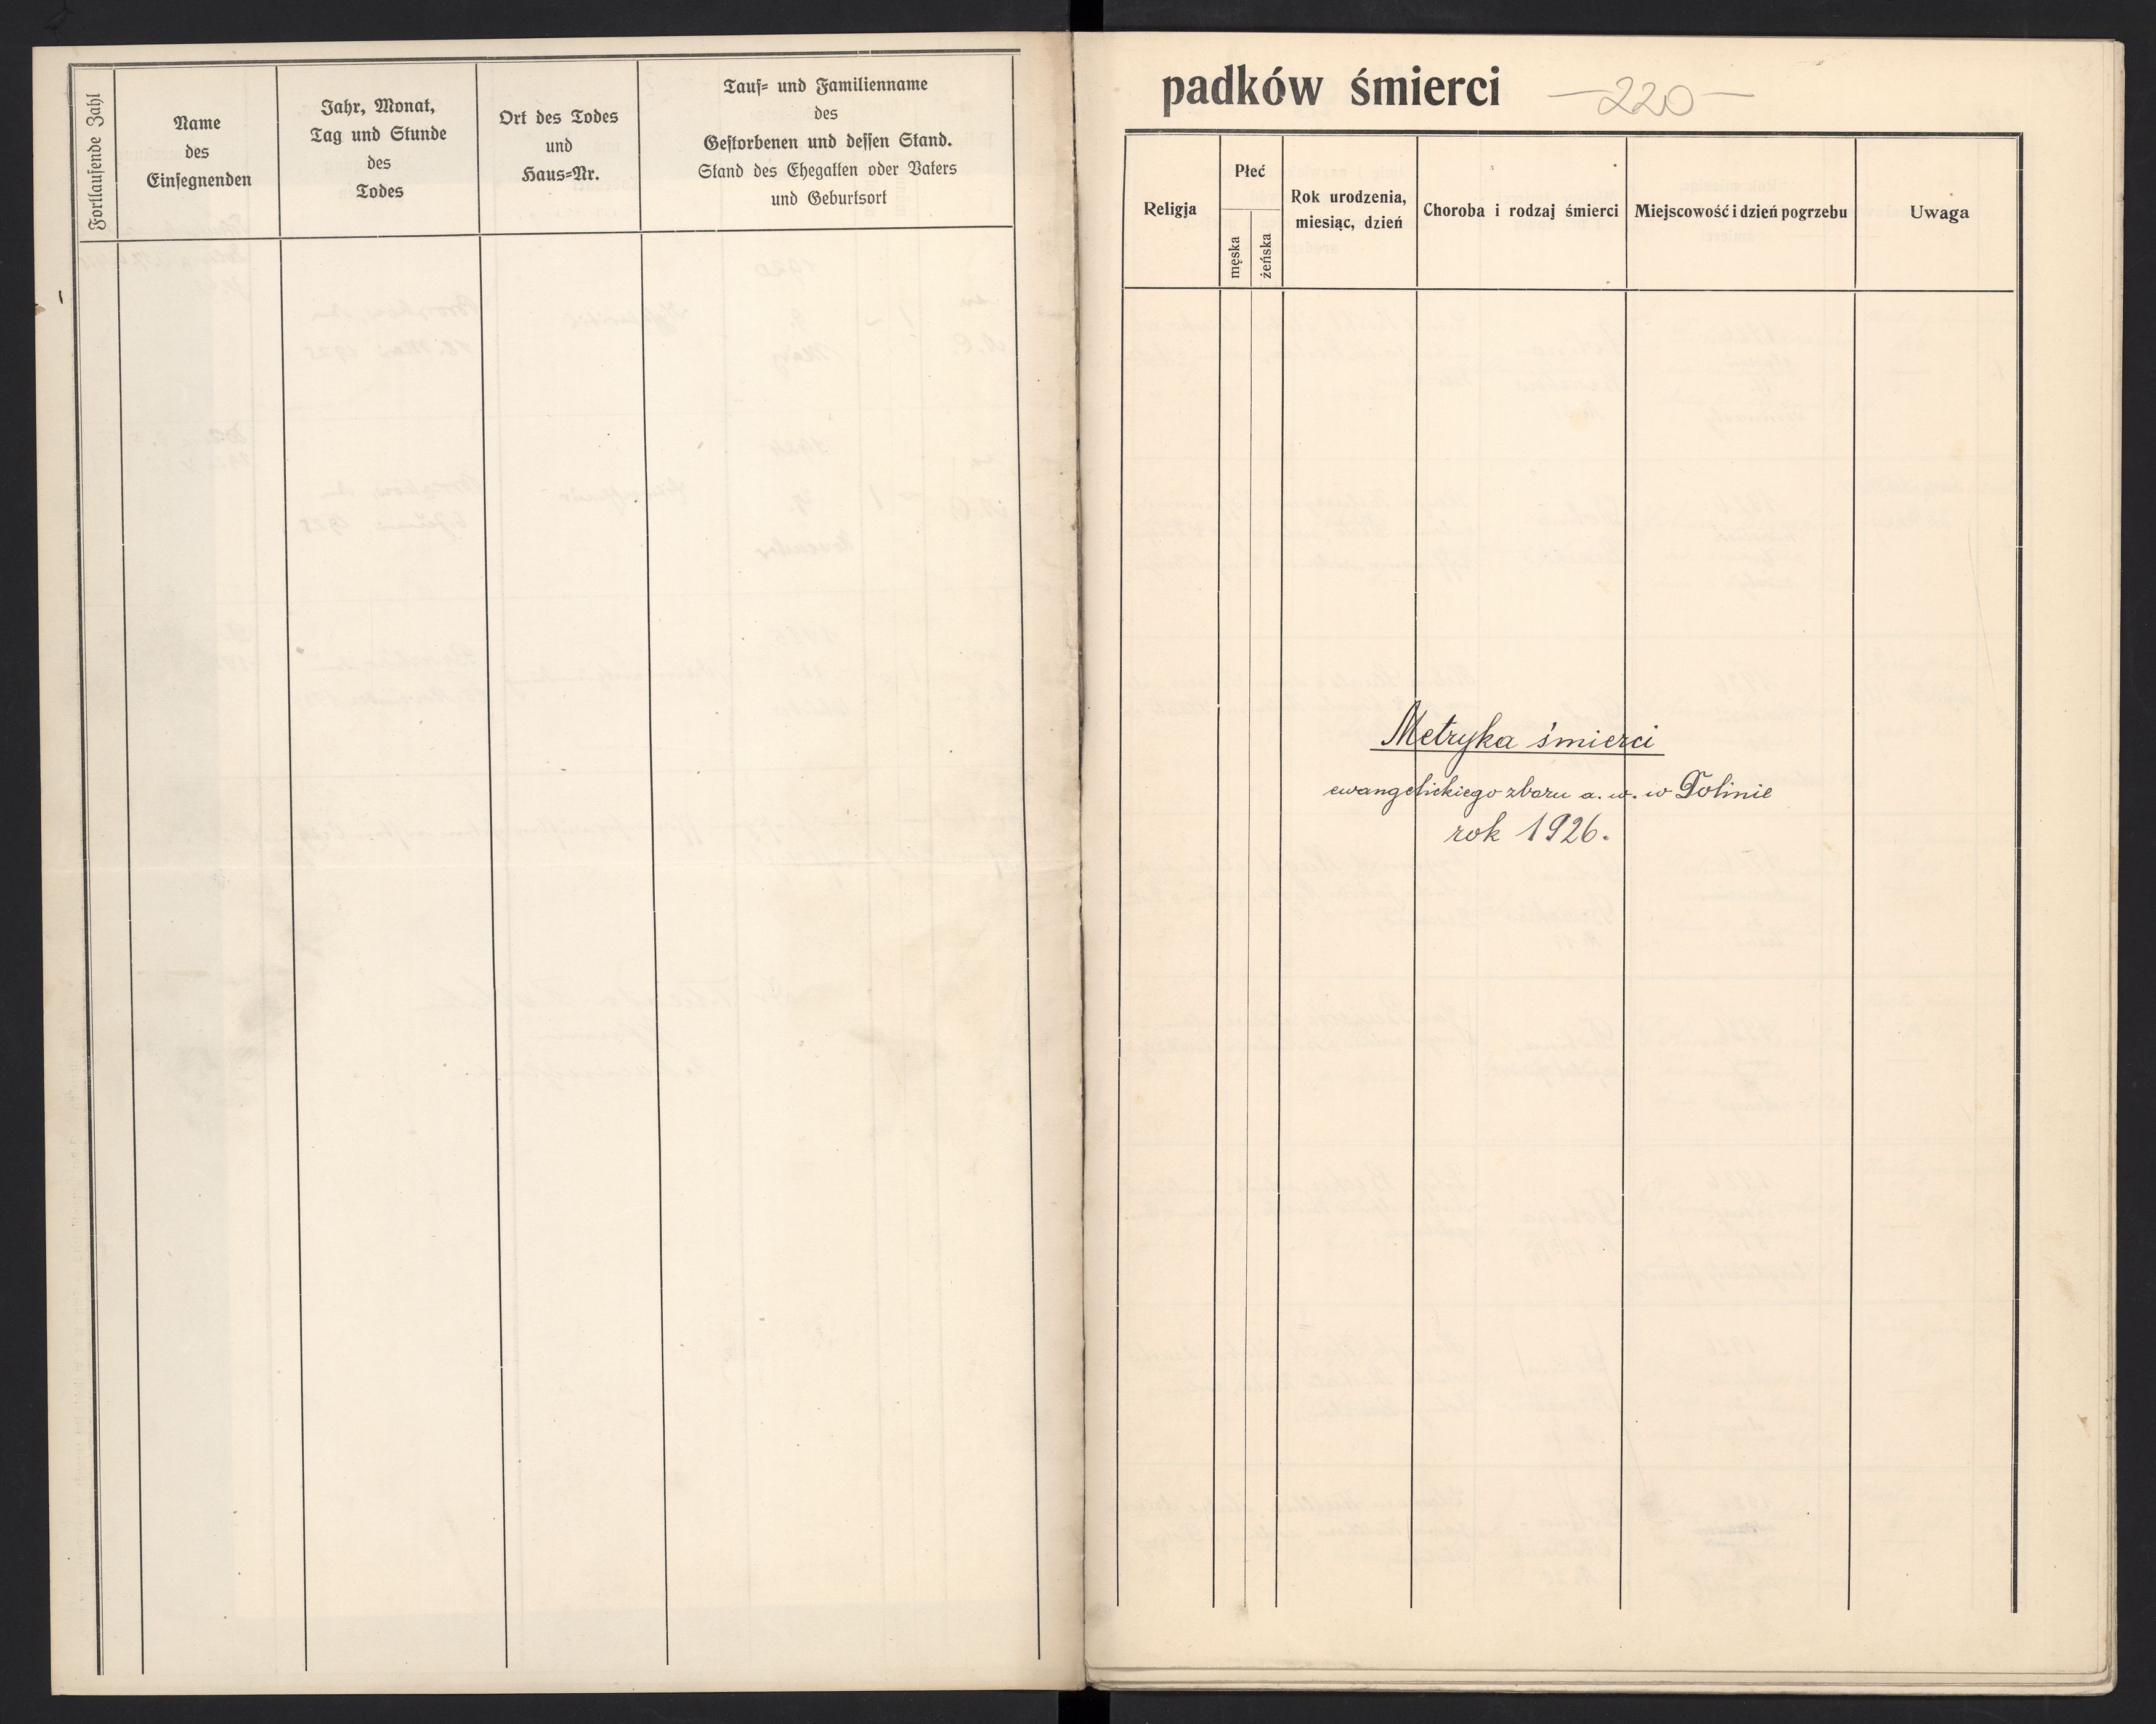 Fortlaufende Zahl
Name
des
Einsegnenden
Jahr, Monat,
Tag und Stunde
des
Todes
Ort des Todes
und
Haus=Nr.
Tauf= und Familienname
des
Gestorbenen und dessen Stand.
Stand des Ehegatten oder Vaters
und Geburtsort
padków śmierci
—220—
Religja
Płeć
męska
żeńska
Rok urodzenia,
miesiąc, dzień
Choroba i rodzaj śmierci
Miejscowość i dzień pogrzebu
Uwaga
Metryka śmierci
ewangelickiego zboru a. w. w Dolinie
rok 1926.